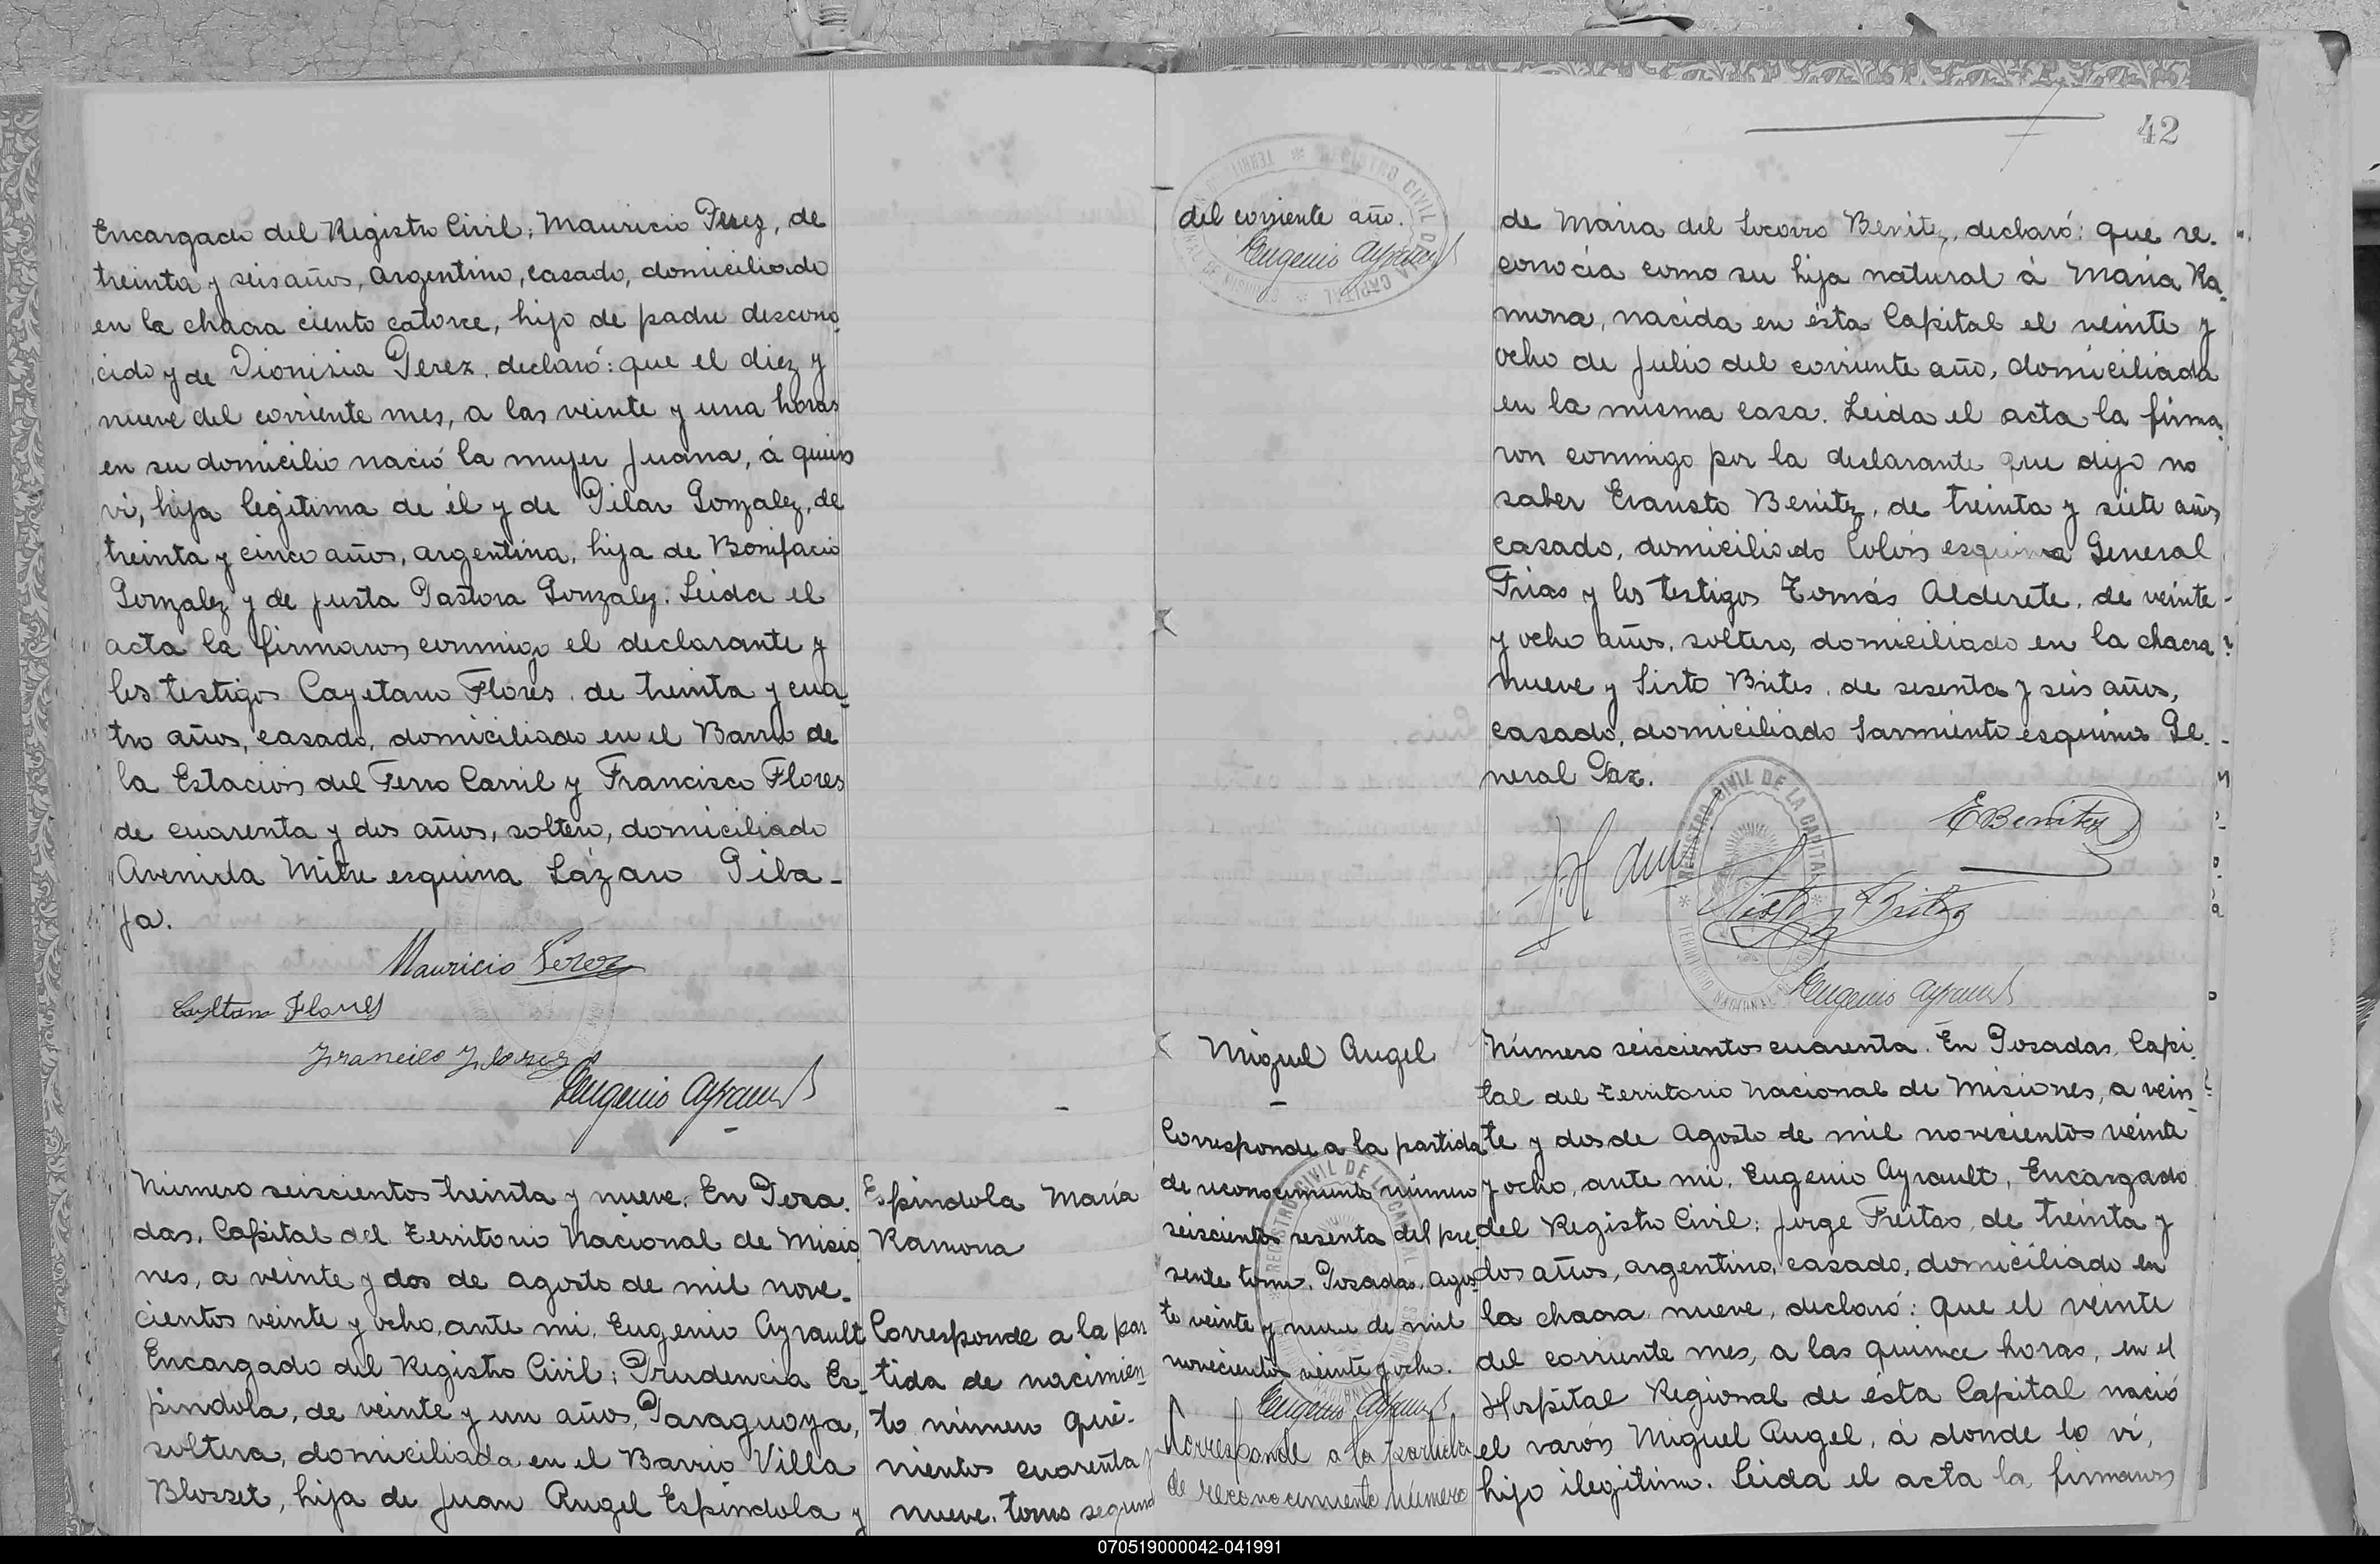 Encargado del Registro Civil; Mauricio Perez, de
treinta y seis años, argentino, casado, domiciliado
en la chacra ciento catorce, hijo de padre descono
cido y de Dionisia Perez, declaró: que el diez y
nueve del corriente mes, a las veinte y una horas
en su domicilio nació la mujer Juana, á quien
ví, hija legítima de él y de Pilar Gonzalez, de
treinta y cinco años, argentina, hija de Bonifacio
Gonzalez y de Justa Pastora Gonzalez. Leida el
acta la firmaron conmigo el declarante y
los testigos Cayetano Flores, de treinta y cua-
tro años, casado, domiciliado en el Barrio de
la Estación del Ferro Carril y Francisco Flores
de cuarenta y dos años, soltero, domiciliado
Avenida Mitre esquina Lázaro Giba-
ja.
Mauricio Perez
Cayetano Flores
Francisco Flores
Eugenio Ayrault
Número seiscientos treinta y nueve. En Posa-
das, Capital del Territorio Nacional de Misio
nes, a veinte y dos de agosto de mil nove-
cientos veinte y ocho, ante mi, Eugenio Ayrault
Encargado del Registro Civil; Prudencia Es-
pindola, de veinte y un años, Paraguaya,
soltera, domiciliada en el Barrio Villa
Blosset, hija de Juan Angel Espindola y
Espindola María
Ramona
Corresponde a la par
tida de nacimien-
to número qui-
nientos cuarenta y
nueve, tomo segund
del corriente año.
Eugenio Ayrault
42
de Maria del Socorro Benitez, declaró: que re-
conocía como su hija natural á Maria Ra-
mona, nacida en ésta Capital el veinte y
ocho de Julio del corriente año, domiciliada
en la misma casa. Leida el acta la firma-
ron conmigo por la declarante que dijo no
saber Evaristo Benitez, de treinta y siete años
casado, domiciliado Colón esquina General
Frias y los testigos Tomás Alderete, de veinte
y ocho años, soltero, domiciliado en la chacra
nueve y Sixto Brites, de sesenta y seis años,
casado, domiciliado Sarmiento esquina Ge-
neral Paz.
REGISTRO CIVIL DE LA CAPITAL
E Benitez
Sixto Britez
Eugenio Ayrault
Miguel Angel
Corresponde a la partida
de reconocimiento número
seiscientos sesenta del pre-
sente tomo. Posadas, agos-
to veinte y nueve de mil
novecientos veinte y ocho.
Eugenio Ayrault
Corresponde a la partida
de reconocimiento número
Número seiscientos cuarenta. En Posadas, Capi
tal del Territorio Nacional de Misiones, a vein-
te y dos de Agosto de mil novecientos veinte
y ocho, ante mi, Eugenio Ayrault, Encargado
del Registro Civil; Jorge Freitas, de treinta y
dos años, argentino, casado, domiciliado en
la chacra nueve, declaró: que el veinte
del corriente mes, a las quince horas, en el
Hospital Regional de ésta Capital nació
el varón Miguel Angel, á donde lo ví,
hijo ilegítimo. Leida el acta la firmaron
070519000042-041991